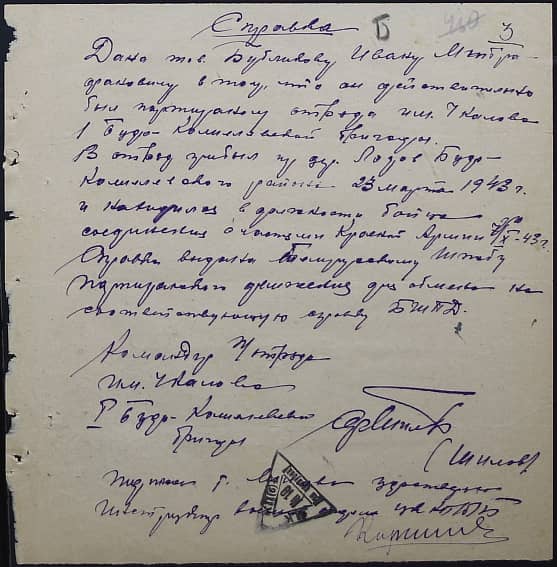 Справка
Б
3
Дано тов. Бубликову Ивану Митро-
фановичу в том, что он действительно
был партизаном отряда им. Чкалова
1 Буда-Кошелевской бригады.
В отряд прибыл из дер. Буда-
Кошелевского района 23 марта 1943 г.
и находился в должности бойца до
соединения с частями Красной Армии XI-43 г.
Справка выдана Белорусскому Штабу
партизанского движения для обмена на
соответствующую справку БШПД.
Командир отряда
им. Чкалова
I Буда-Кошелевской
бригады
(Шилов)
Подпись т. удостоверяю